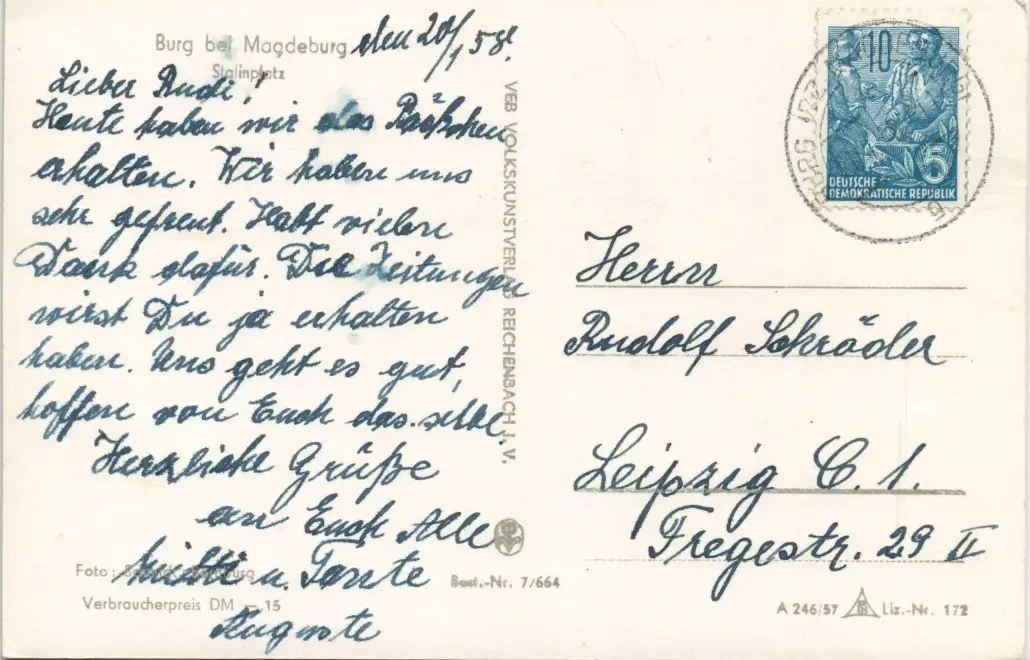 Burg bei Magdeburg
Stalinplatz
den 20/1 58.
Lieber Rudi!
Heute haben wir das Päckchen
erhalten. Wir haben uns
sehr gefreut. Habt vielen
Dank dafür. Die Zeitungen
wirst Du ja erhalten
haben. Uns geht es gut,
hoffen von Euch das selbe.
Herzliche Grüße
an Euch Alle
u. Tante
Auguste
Foto:
Verbraucherpreis DM -.15
Best.-Nr. 7/664
VEB VOLKSKUNSTVERLAG REICHENBACH I. V.
10
5
DEUTSCHE
DEMOKRATISCHE REPUBLIK
BURG
Herrn
Rudolf Schröder
Leipzig C. 1.
Fregestr. 29 II
A 246/57 Liz.-Nr. 172